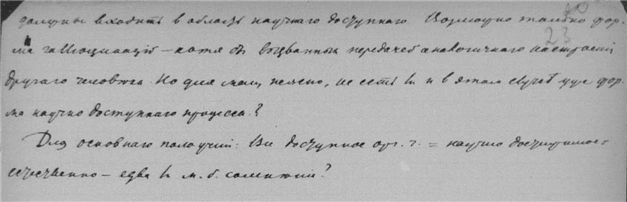 должны входить в область научного доступного. Возможно только фор-
ма галлюцинаций – хотя б вызванных передачей аналогичного настроения
23
другого человека. Но для меня неясно, не есть ли и в этом случае уже фор-
ма научно доступного процесса?
Для основного получил: Все доступное орг. г. = научно достижимо
естественно – едва ли м. б. сомнений?